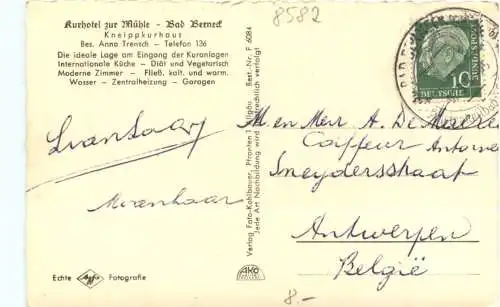 8582
Kurhotel zur Mühle - Bad Berneck
Kneippkurhaus
Bes. Anna Trensch - Telefon 136
Die ideale Lage am Eingang der Kuranlagen
Internationale Küche - Diät und Vegetarisch
Moderne Zimmer - Fließ. kalt. und warm.
Wasser - Zentralheizung - Garagen
Verlag Foto-Kohlbauer, Pfronten i. Allgäu Best.-Nr. F 6084
Jede Art Nachbildung wird gerichtlich verfolgt
10
DEUTSCHE
BUNDESPOST
M en Mevr A. De
Coiffeur Antoine
Sneydersstraat
Antwerpen
België
Echte Agfa Fotografie
AKO
8.-